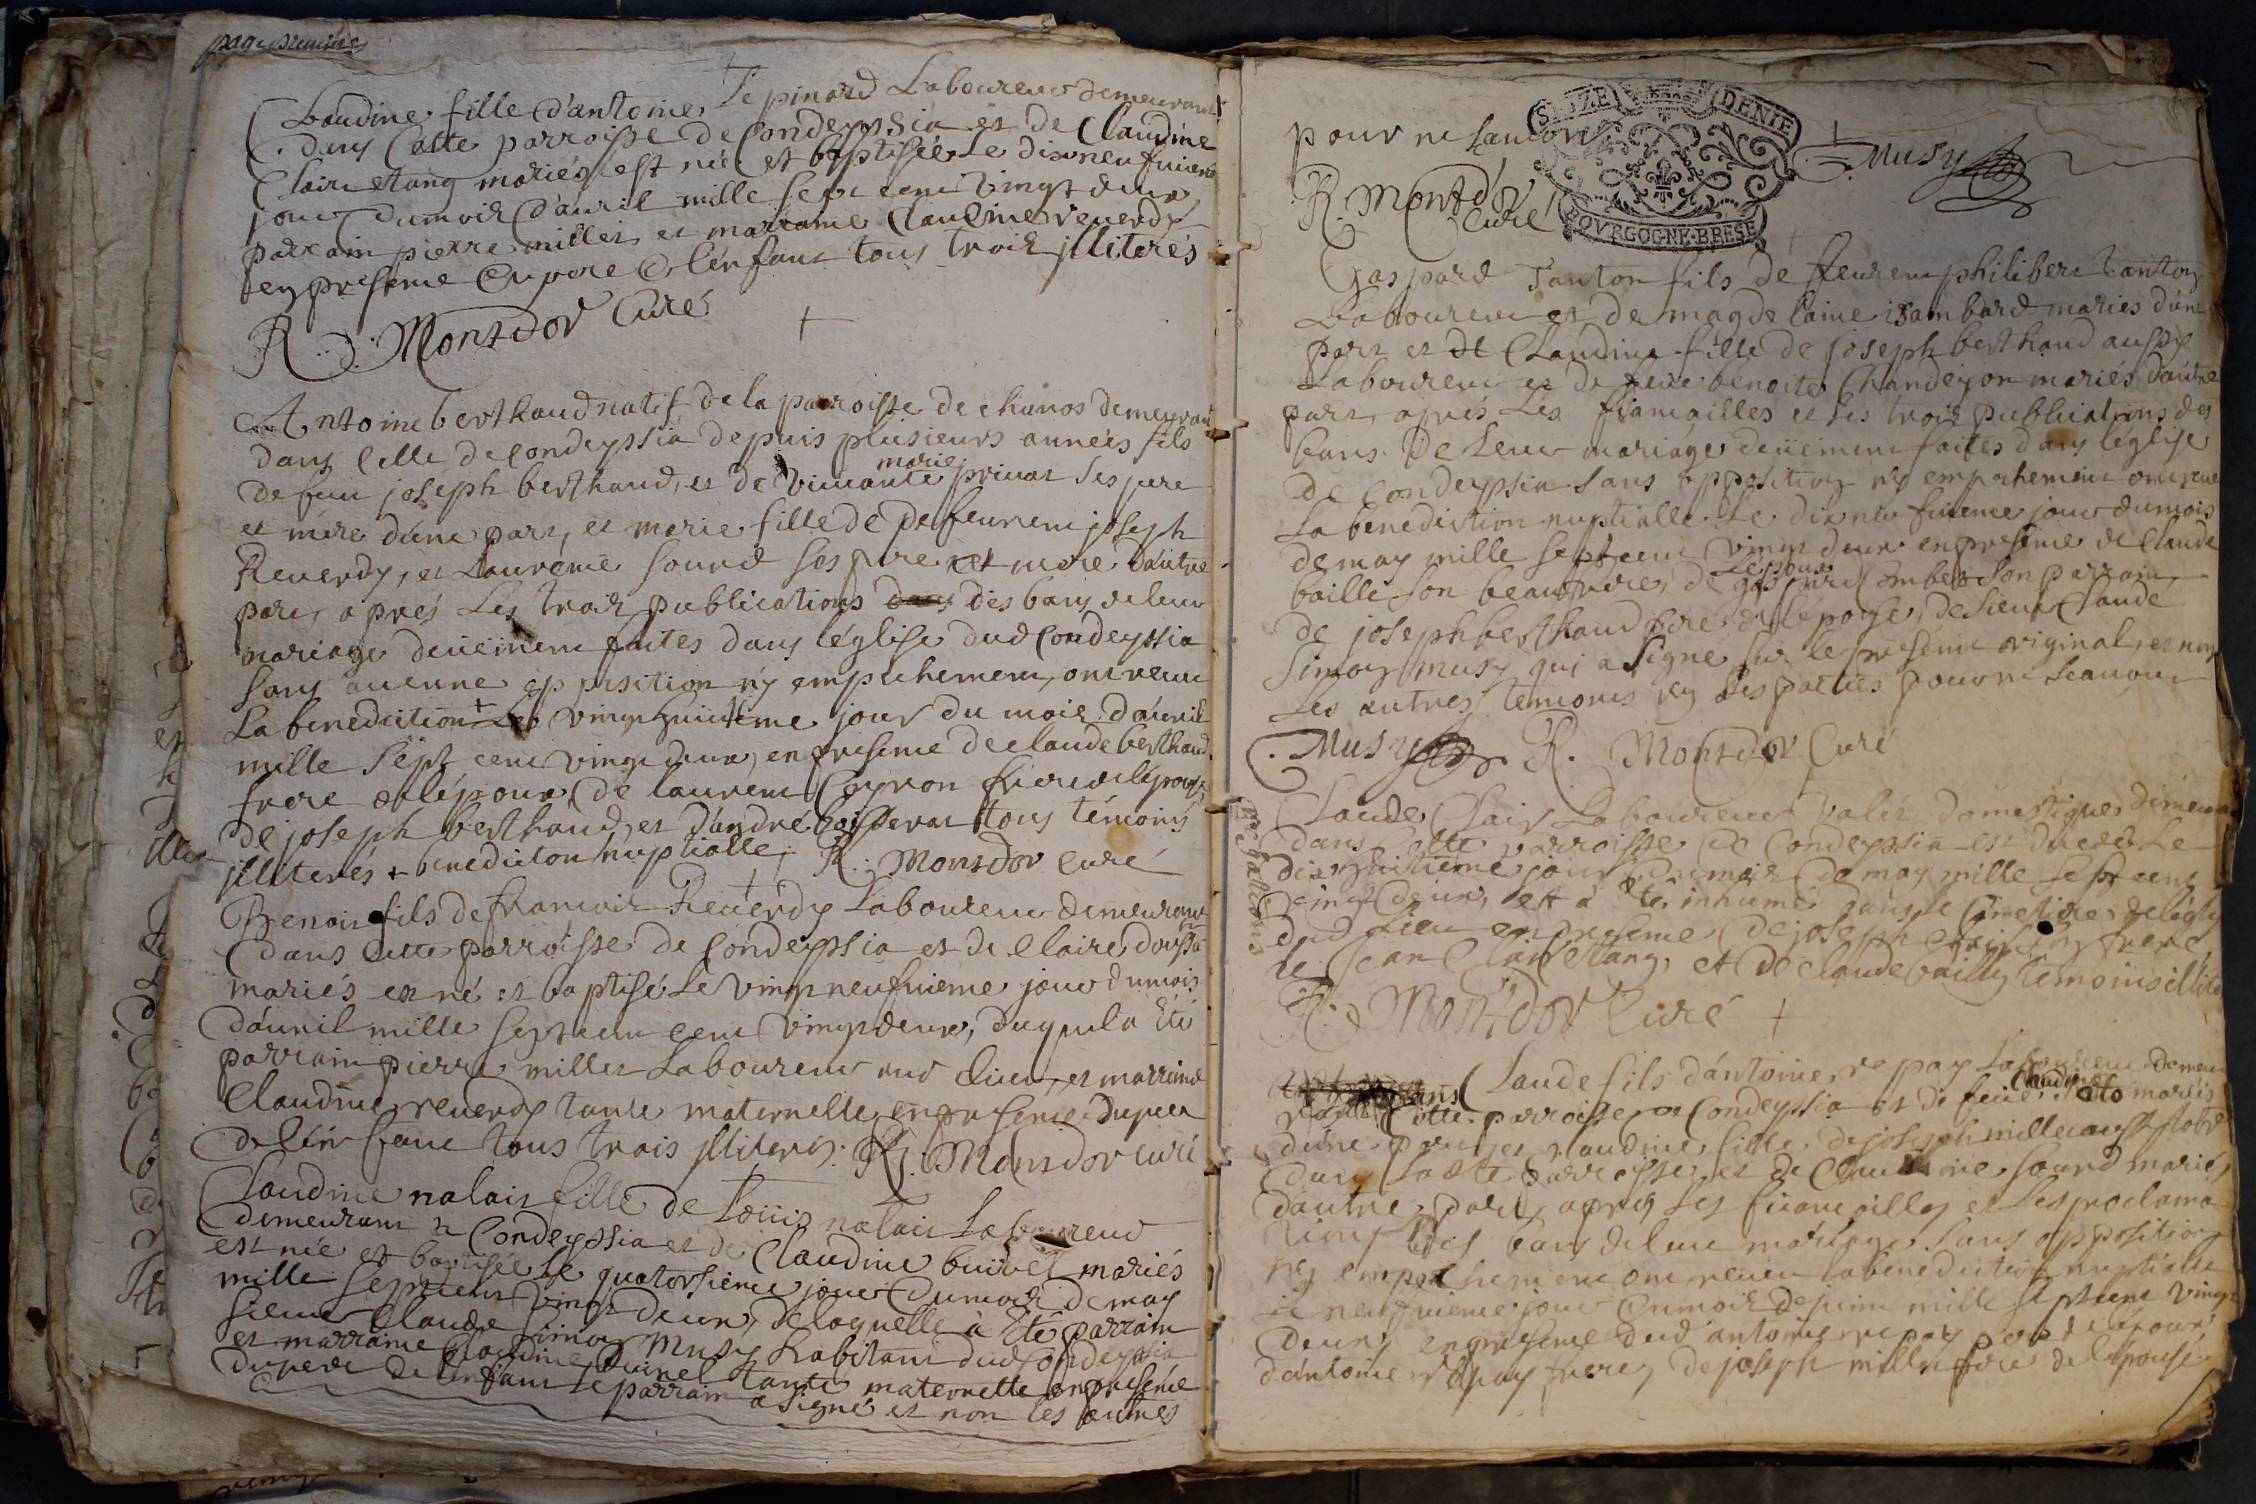 page premiere
Claudine fille d'antoine Lepinard Laboureur demeurant
dans Cette parroisse de Condeyssia et de Claudine
Clair etang mariés est née et baptisée Le dixneufuieme
jour dumois d'auril mille sept cent vingt deux
parrain pierre millet et marraine Claudine reuerdy
en presence du pere de l'enfant tous trois jlliterés
R. d. Montdor Curé
Antoine berthaud natif de la parroisse de chanos demeurant
dans Celle de Condeyssia depuis plusieurs années fils
de feu joseph berthaud, et de viuante marie priuat ses pere
et mere d'une part, et marie fille de defeu rem joseph
Reuerdy, et Laurence sourd ses pere et mere d'autre
part, aprés Les trois publications dans des bans de leur
mariage deüement faites dans l'église dud Condeyssia
sans aucune opposition ny empechement, ont receu
La benediction + Le vingthuitieme jour du mois d'auril
mille sept cent vingt deux, en presence de claude berthaud
frere de l'époux, de laurent Coyron frere de l'épouse
de joseph berthaud, et d'andré boisserat tous témoins
jlliterés + benediction nuptialle; R. Montdor Curé
Benoit fils de francois Reuerdy Laboureur demeurant
dans Cette parroisse de Condeyssia et de Claire
mariés est né et baptisé Le vingtneufuieme jour dumois
d'auril mille sept cent vingtdeux, duquel a êté
parrain pierre millet Laboureur aud Lieu, et marraine
Claudine reuerdy tante maternelle en presence du pere
de l'enfant tous trois jlliterés. R. Montdor curé
Claudine nalait fille de Loüis nalait Laboureur
demeurant à Condeyssia et de Claudine buirel mariés
est née et baptisée Le quatorsieme jour dumois de may
mille sept cent vingt deux, de laquelle à êté parrain
sieur Claude simon Musy habitant dud Condeyssia
et marraine Claudine buirel tante maternelle en presence
du pere de l'enfant le parrain a signé et non les autres
pour ne scauoir
SEIZE DENIE
BOVRGOGNE·BRESE
Musy
R. Montdor
Curé
Gaspard Tanton fils de feu rem philibert tanton
Laboureur et de magdelaine isambard mariés d'une
part et de Claudine fille de joseph berthaud aussy
Laboureur et de feüe benoite Chandeyon mariés d'autre
part, aprés Les fiancailles et les trois publications des
bans de Leur mariage deüement faites dans l'église
de Condeyssia sans opposition ny empechement ont receu
La benediction nuptialle Le dixneufuieme jour dumois
de may mille sept cent vingt deux en presence de Claude
baille son beaufrere, de gaspard Combet son parrain
de joseph berthaud pere de l'épouse, de sieur Claude
Simon musy qui a signé sur le present original, et non
Les autres temoins ny Les parties pour ne scauoir
Musy R. Montdor Curé
Claude Clair Laboureur valet domestique demeurant
dans Cette parroisse de Condeyssia est decedé Le
dixhuitieme jour dumois de may mille sept cent
vingt deux, et a êté inhumé dans le Cimetiere de l'église
dud Lieu en presence de joseph clair son frere
de jean Clair etang, et de claude bailly temoins illite
R. d Montdor Curé
Claude fils d'antoine repay Laboureur demeu
rant dans Cette parroisse de Condeyssia et de feüe Claudine mariés
d'une part, et claudine fille de joseph millet aussy
dans Cette parroisse et de Claudine sourd mariés
d'autre part, aprés Les fiancailles et Les proclama
tions des bans de leur mariage sans opposition
ny empechement ont receu la benediction nuptialle
Le neufuieme jour dumois de juin mille sept cent vingt
deux, en presence dud antoine repay pere de l'époux
d'antoine repay frere, de joseph millet pere de l'epouse